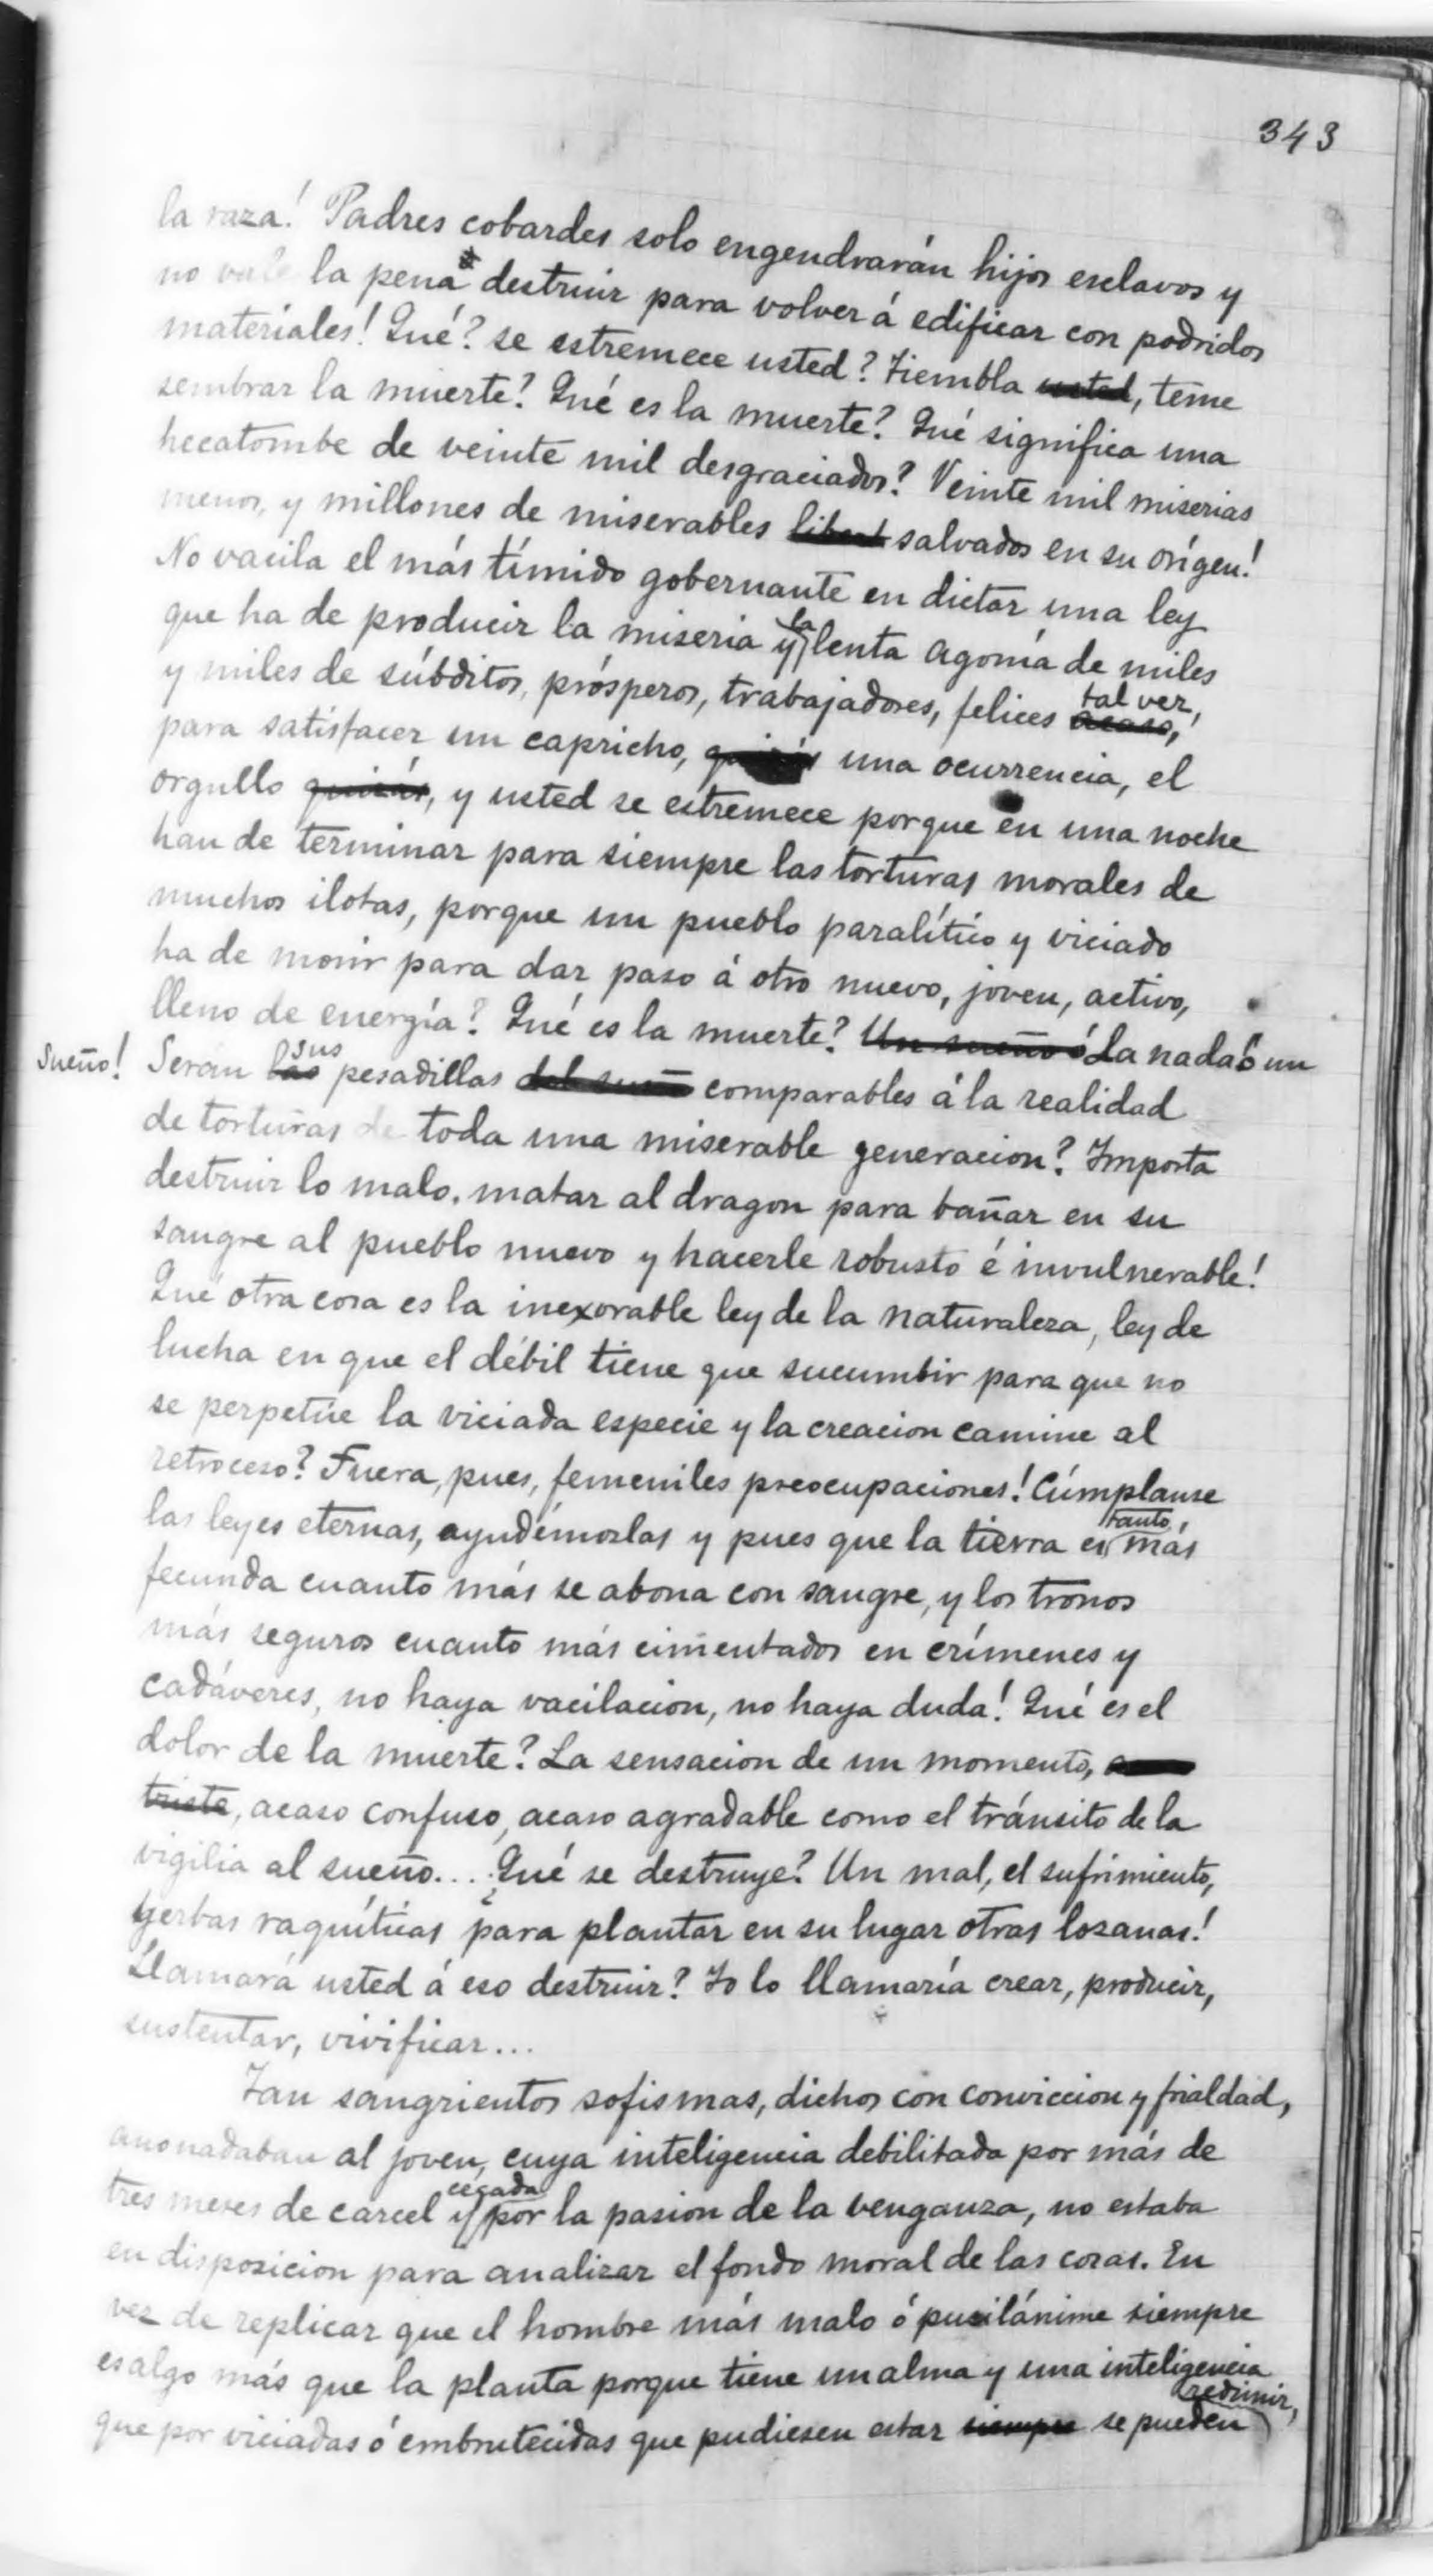 343
la raza! Padres cobardes solo engendrarán hijos esclavos y
no vale la pena destruir para volver á edificar con podridos
materiales! Qué? se estremece usted? Tiembla usted, teme
sembrar la muerte? Qué es la muerte? Qué significa una
hecatombe de veinte mil desgraciados? Veinte mil miserias
menos, y millones de miserables libert salvados en su orígen!
No vacila el más tímido gobernante en dictar una ley
que ha de producir la miseria y la lenta agonía de miles
y miles de súbditos, prósperos, trabajadores, felices acaso, tal vez,
para satisfacer un capricho, quizás una ocurrencia, el
orgullo quizás, y usted se estremece porque en una noche
han de terminar para siempre las torturas morales de
muchos ilotas, porque un pueblo paralítico y viciado
ha de morir para dar paso á otro nuevo, joven, activo,
lleno de energía? Qué es la muerte? Un sueño ó La nada ó un
sueño! Serán las sus pesadillas del sueño comparables á la realidad
de torturas de toda una miserable generacion? Importa
destruir lo malo, matar al dragon para bañar en su
sangre al pueblo nuevo y hacerle robusto é invulnerable!
Qué otra cosa es la inexorable ley de la naturaleza, ley de
lucha en que el débil tiene que sucumbir para que no
se perpetúe la viciada especie y la creacion camine al
retroceso? Fuera, pues, femeniles preocupaciones! Cúmplanse
las leyes eternas, ayudémoslas y pues que la tierra es tanto más
fecunda cuanto más se abona con sangre, y los tronos
más seguros cuanto más cimentados en crímenes y
cadáveres, no haya vacilacion, no haya duda! Qué es el
dolor de la muerte? La sensacion de un momento,
triste, acaso confuso, acaso agradable como el tránsito de la
vigilia al sueño... ¿Qué se destruye? Un mal, el sufrimiento,
yerbas raquíticas para plantar en su lugar otras lozanas!
Llamará usted á eso destruir? Yo lo llamaría crear, producir,
sustentar, vivificar...
Tan sangrientos sofismas, dichos con conviccion y frialdad,
anonadaban al joven, cuya inteligencia debilitada por más de
tres meses de carcel y cegada por la pasion de la venganza, no estaba
en disposicion para analizar el fondo moral de las cosas. En
vez de replicar que el hombre más malo ó pusilánime siempre
es algo más que la planta porque tiene un alma y una inteligencia
que por viciadas ó embrutecidas que pudiesen estar siempre se pueden redimir,